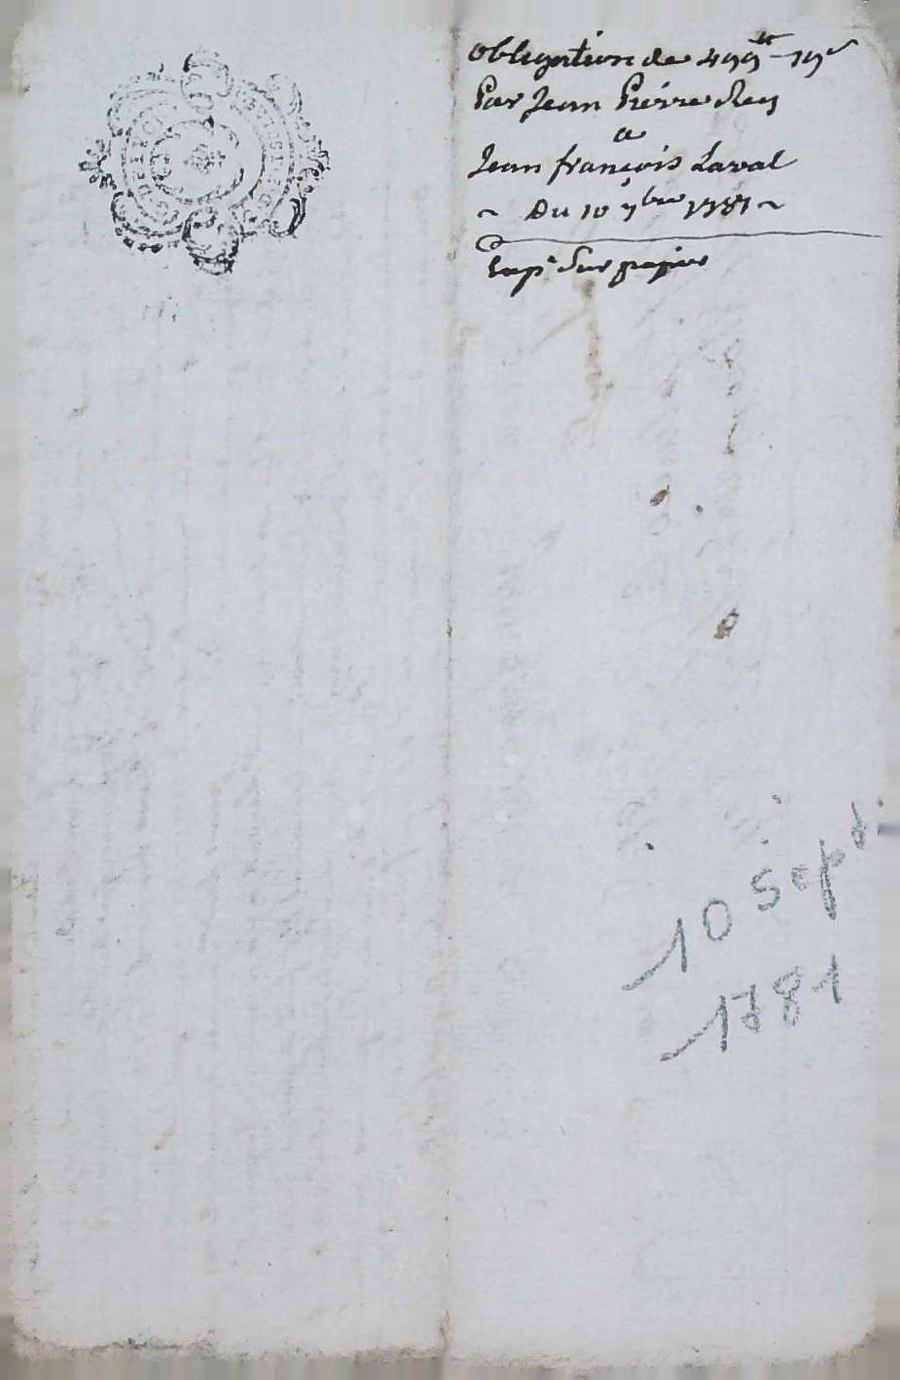 obligation de 499ᵗᵗ - 19ˢ
Par Jean Pierre Rey
a
Jean françois Laval
~ Du 10 7bre 1781 ~
Exp.ᵉ Sur papier
10 Sept
1781